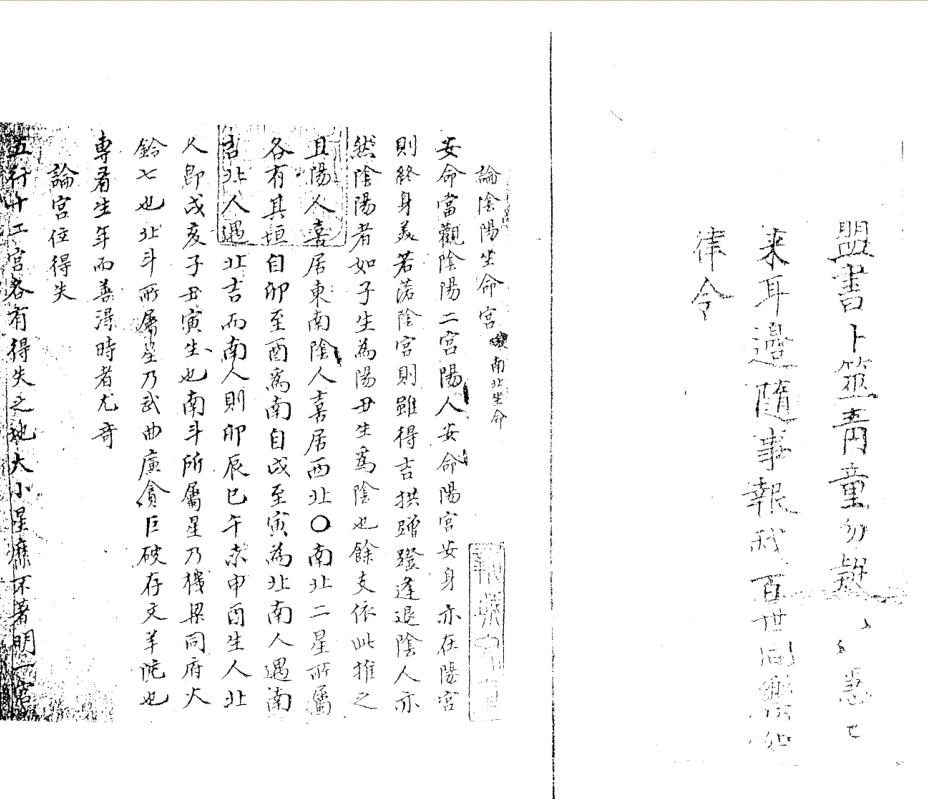 盟書卜筮青童勿疑
来耳邉随事報我百世同
律令
論陰陽生命宮 南北生命
安命當觀陰陽二宮陽人安命陽宮安身亦在陽宮
則終身美若落陰宮則雖得吉拱蹭蹬逢退陰人亦
然陰陽者如子生為陽丑生為陰也餘支依此推之
且陽人喜居東南陰人喜居西北〇南北二星所屬
各有其垣自卯至酉為南自戌至寅為北南人遇南
吉北人遇北吉而南人則卯辰巳午未申酉生人北
人即戌亥子丑寅生也南斗所屬星乃機梁同府火
鈴七也北斗所屬星乃武曲廉貪巨破存文羊陀也
專看生年而善得時者尤奇
論宮位得失
五行十二宮各有得失之地大小星